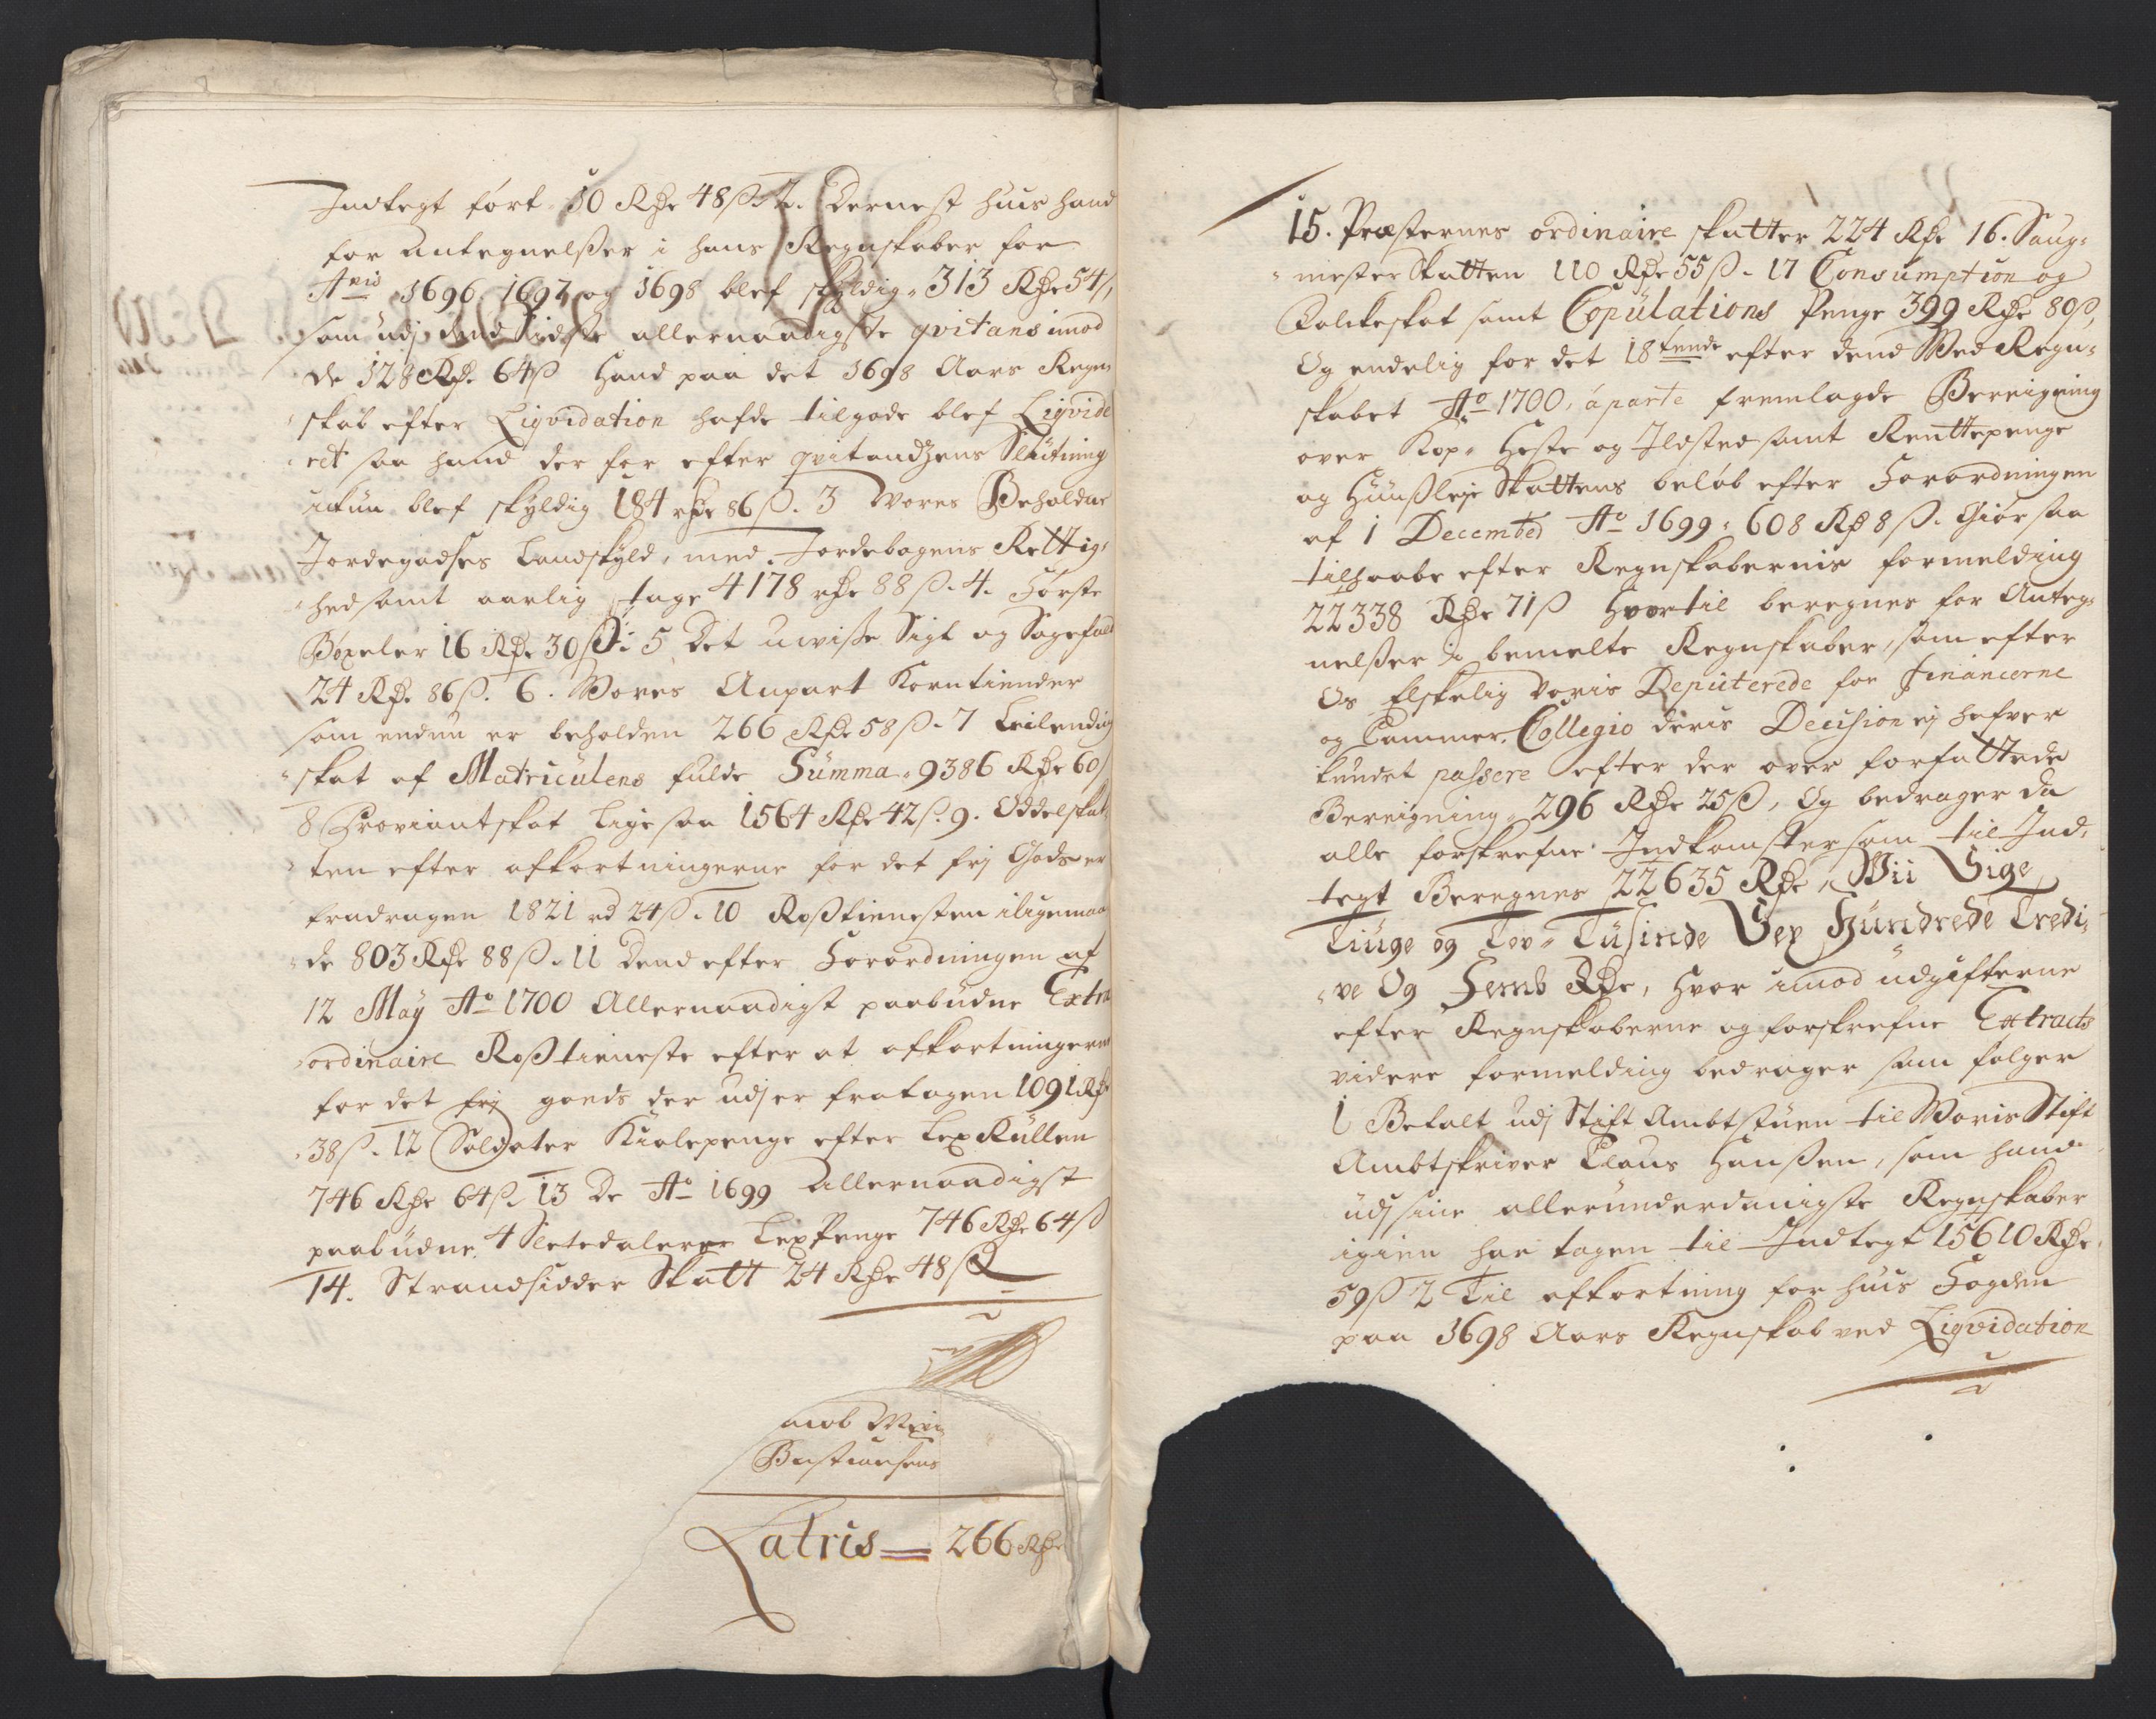 Indtegt ført 10 Rdr 48 ß 2. Dernest huis hand
for Antegnelßer i hans Regnskaber for
Anis 1696. 1697 og 1698 blef skyldig 313 Rdr 54 ß,
som udj dend sidste allernaadigste qvitans imod
de 128 Rdr. 64 ß hand paa det 1698 Aars Regen
skab efter Liqvidation hafde tilgode blef Liqvide
ret saa hand der for efter qvitandzens Slutning
ickun blef skyldig 184 rdr 86 ß. 3 Vores Beholdne
Jordegodses Landskyld, med Jordebogens Rettig-
hed samt aarlig tage 4178 rdr 88 ß. 4. Første
Böxeler 16 Rdr 30 ß: 5 Det uwiße Sigt og Sagefald
24 Rdr. 86 ß. 6. Vores Anpart Korntiender
som endnu er beholden 266 Rdr 58 ß. 7 Leilending
skat af Matriculens fulde Summa 9386 Rdr 60 ß
8 Proviantskat Ligesaa 1564 Rdr 42 ß. 9. Oddelskat-
ten efter afkortningerne for det frj Gods er
fradragen 1821 rd 24 ß. 10 Roßtienesten iligemaa
de 803 Rdr 88 ß. 11 Dend efter Forordningen af
12 May Ao 1700 Allernaadigst paabudne Extra
ordinaire Roßtieneste efter at afkortningerne
for det frj goeds der udj er fratagen 1091 Rdr
38 ß. 12 Soldater Kiolepenge efter LexRullen
746 Rdr 64 ß 13 De Ao 1699 Allernaadigst
paabudne 4 Sletedalerer LexPenge 746 Rdr 64 ß
14. Strandsidder Skatt 24 Rdr 48 ß
Bastiansens
Latris 266 Rdr
15. Præsternes ordinaire skatter 224 Rdr 16. Saug-
mesterSkatten 110 Rdr 55 ß. 17 Consumption og
Folckeskat samt Copulations Penge 399 Rdr 80 ß,
Og endelig for det 18tende efter dend Ved Regn-
skabet Ao 1700, áparte fremlagde Bereigning
over Kop- Heste og Ildsted samt Renttepenge
og HuußlejeSkattens beløb efter Forordningen
af 1 Decembed Ao 1699: 608 Rd 8 ß. Giør saa
tilhaabe efter Regnskabernis formelding
22338 Rdr 71 ß Hvortil beregnes for Anteg-
nelßer i bemelte Regnskaber, som efter
Os Elskelig Voris Deputerede for Financerne
og Cammer-Collegio deris Decision ej hafver
kundet passere efter der over forfattede
Bereigning 296 Rdr 25 ß, Og bedrager da
alle forskrefne Indkomster som til Ind-
tegt Beregnes 22635 Rdr, Wii Sige
Tiuge og Tov- Tusinde Sex Hundrede Tredi-
ve Og Femb Rdr, Hvor imod udgifterne
efter Regnskaberne og forskrefne Extracts
videre formelding bedrager som følger
1 Betalt udj Stift Ambtstuen til Woris Stift
Ambtskriver Claus Hanßen, som hand
udj sine allerunderdanigste Regnskaber
igien har tagen til Indtegt 15610 Rdr
59 ß 2 Til afkortning for huis Fogden
paa 1698 Aars Regnskab ved Liqvidation